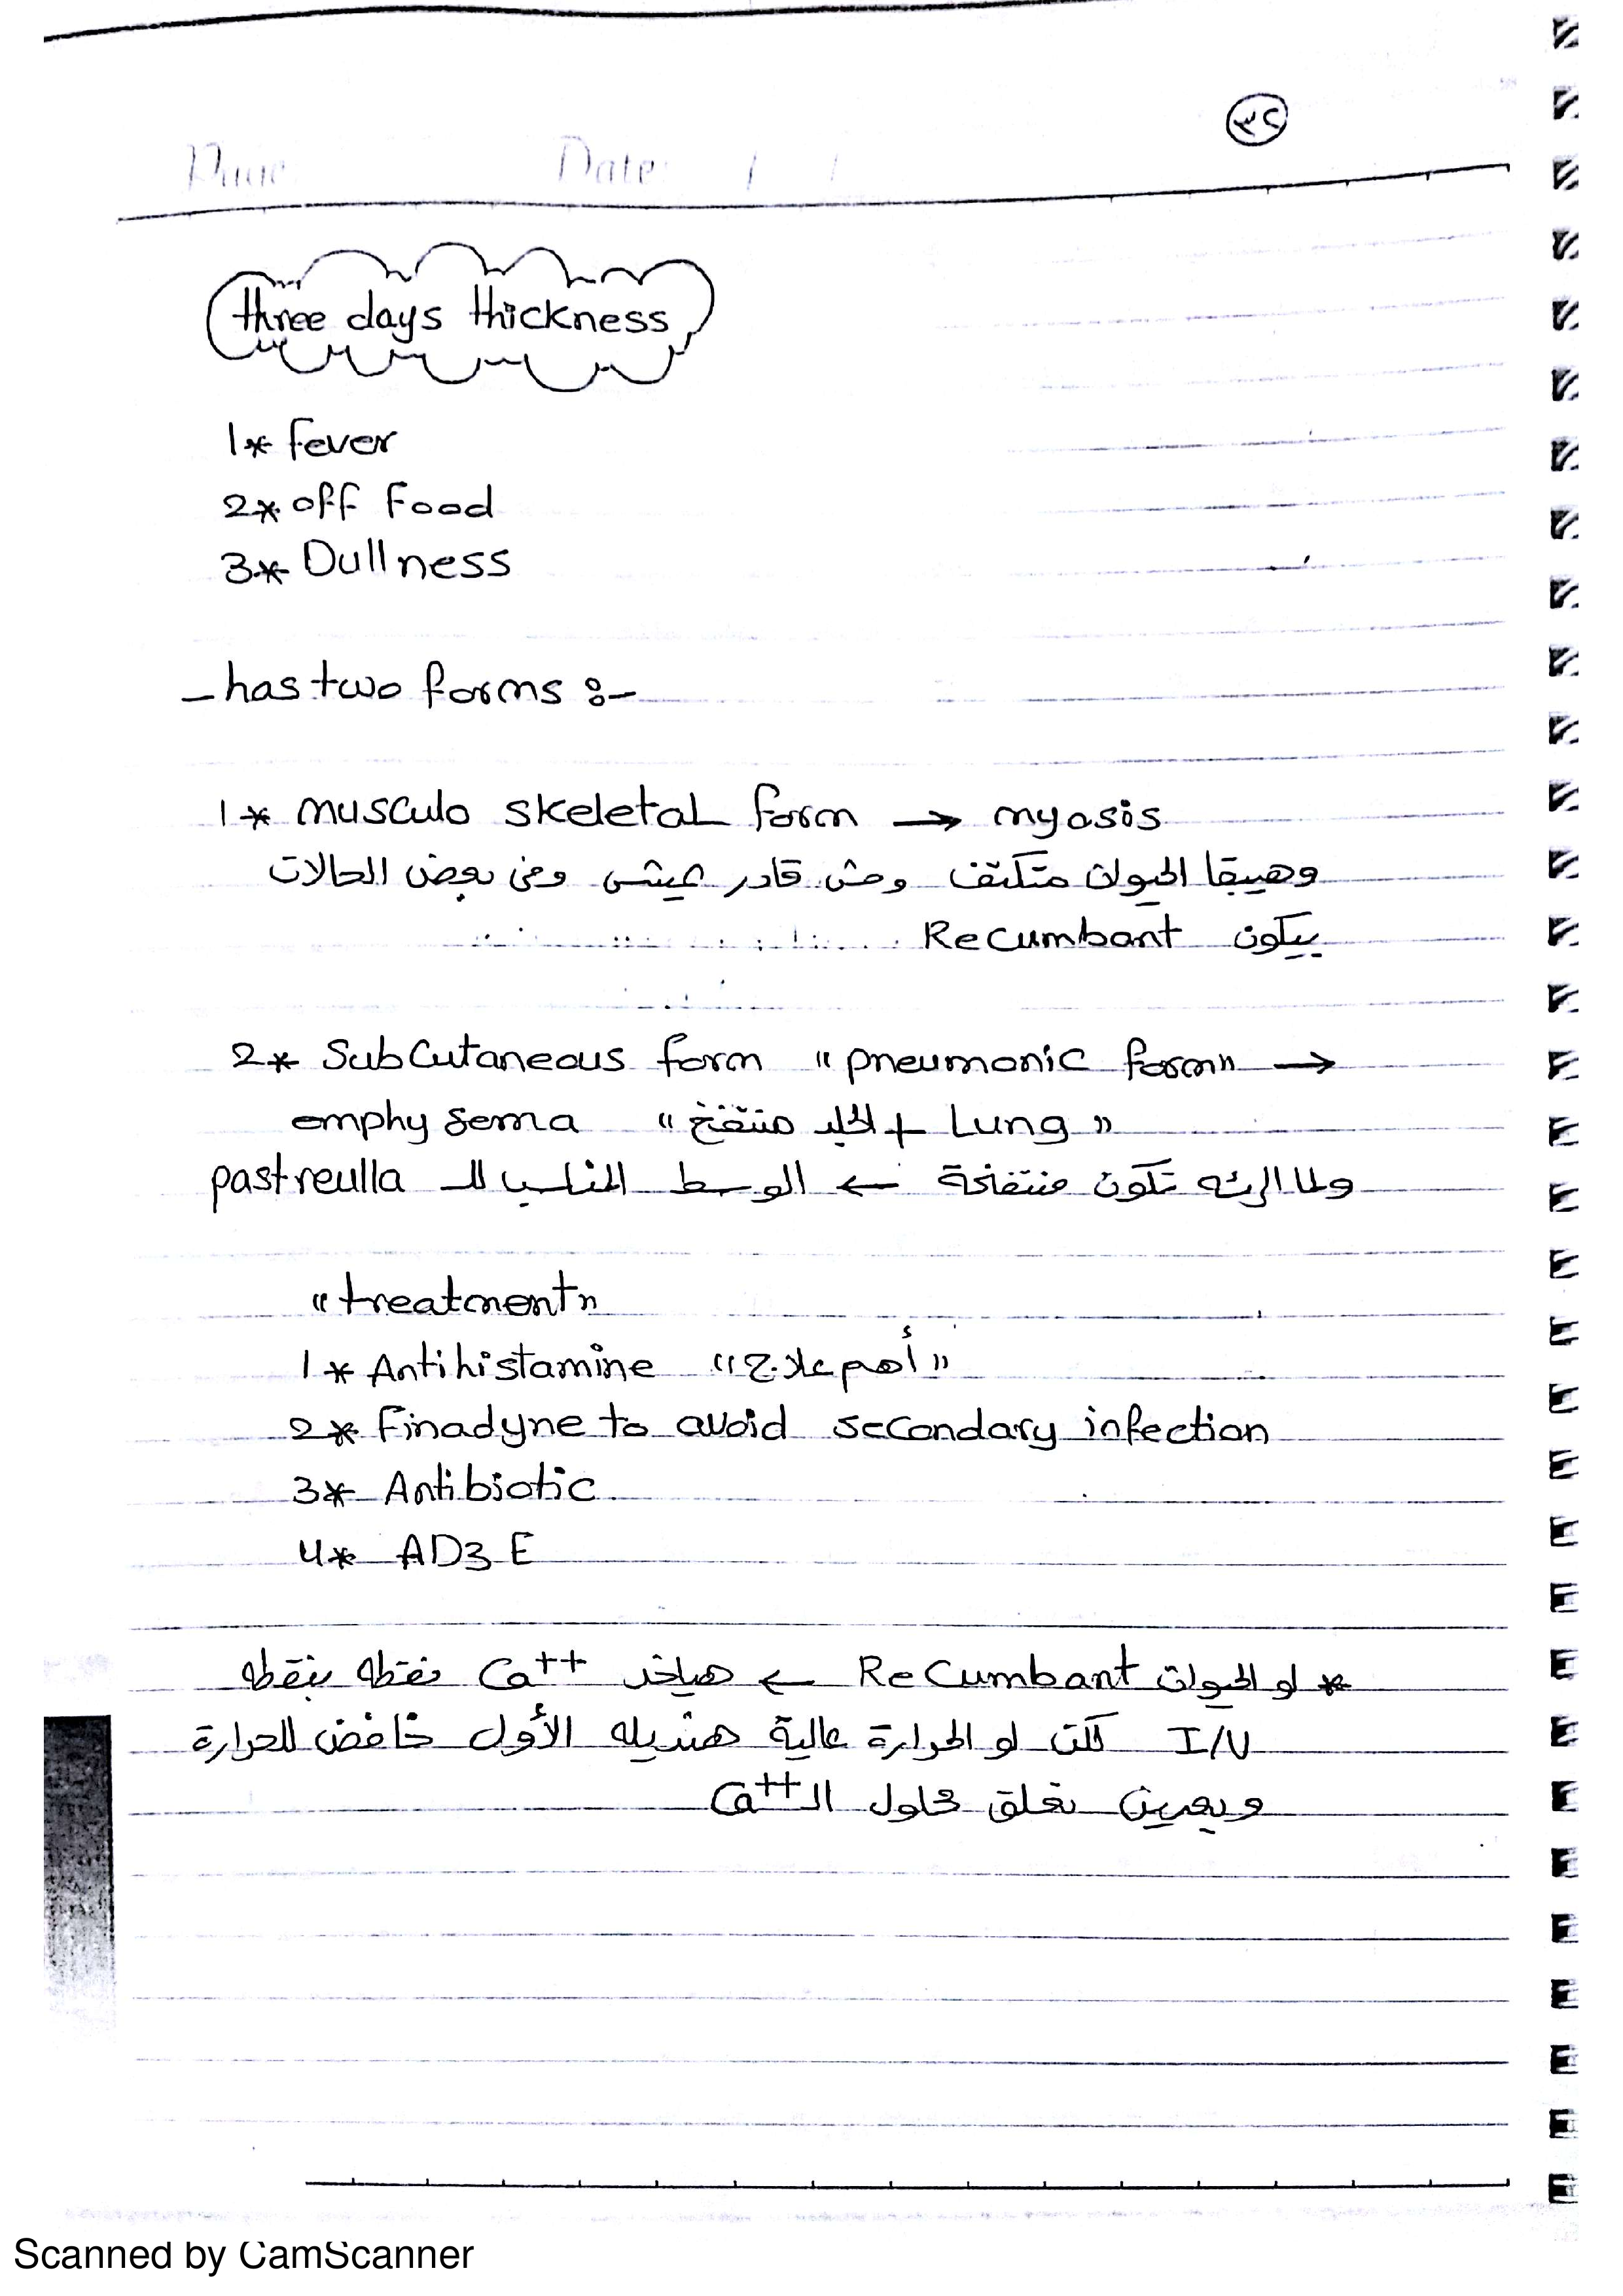 ٣٢
Page: Date: / /
three days thickness
1* fever
2* off Food
3* Dullness
- has two forms :-
1* musculo skeletal form → myosis
وهيبقا الحيوان متكتف ومش قادر يمشى وفى بعض الحالات
بيكون Recumbant
2* SubCutaneous form "pneumonic form" →
emphysema "الجلد منتفخ + Lung"
ولما الرئه تكون منتفخة ← الوسط المناسب للـ pastreulla
"treatment"
1* Antihistamine "أهم علاج"
2* Finadyne to avoid secondary infection
3* Antibiotic
4* AD3E
* لو الحيوان ReCumbant ← هياخد Ca++ نقطه بنقطه
I/V لكن لو الحرارة عالية هنديله الأول خافض للحرارة
وبعدين نعلق محلول الـ Ca++
Scanned by CamScanner